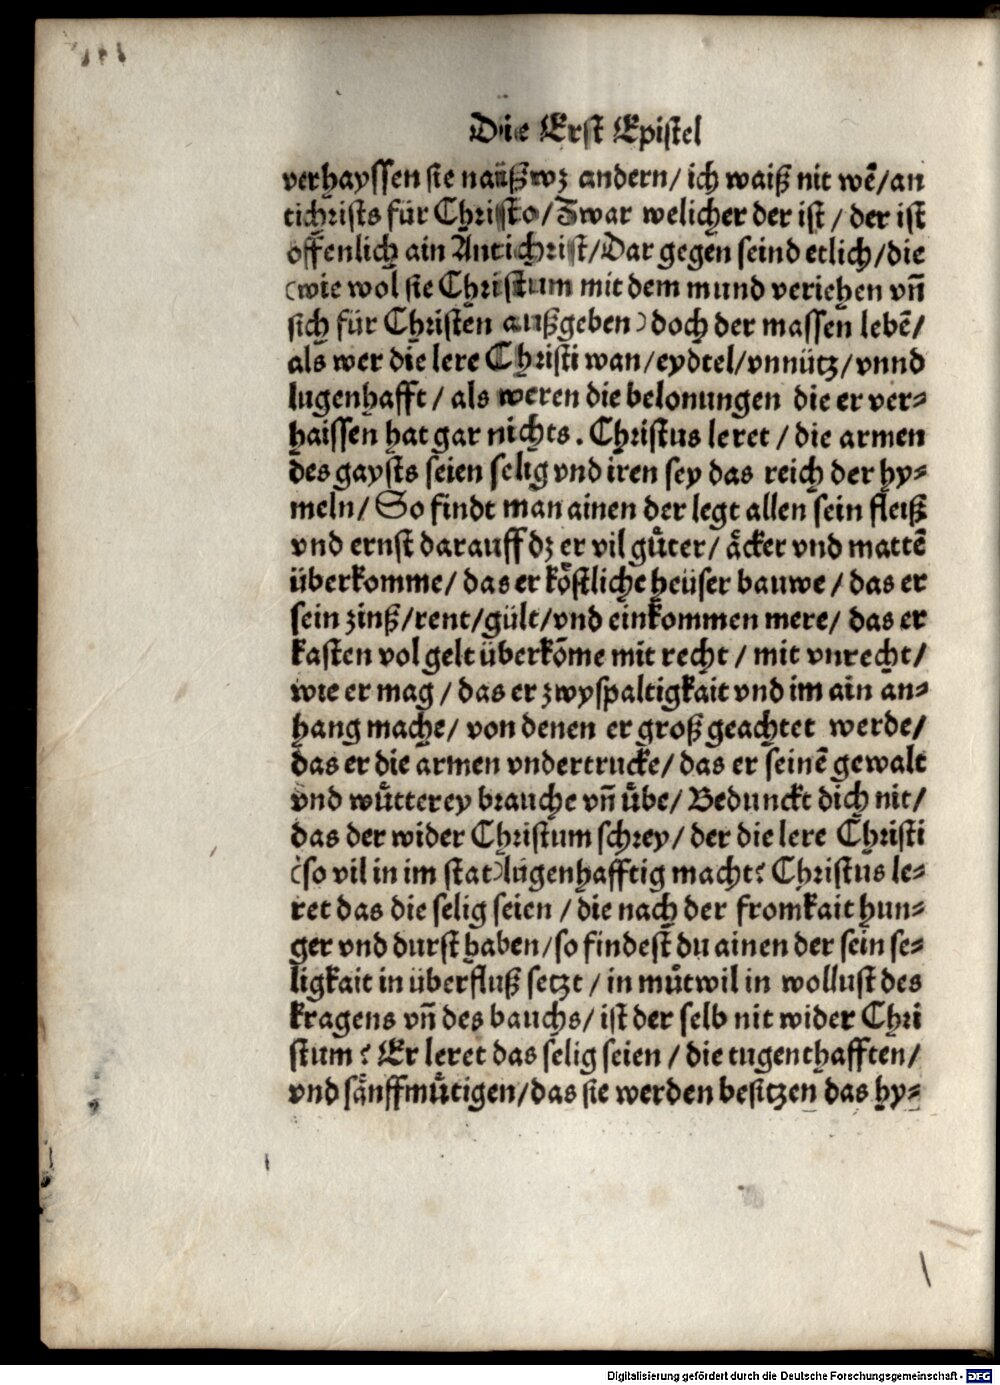 Die Erst Epistel
verhayssen sie naüßwz andern/ ich waiß nit wē/an
tichrists für Christo/Zwar welicher der ist / der ist
offenlich ain Antichrist/Dar gegen seind etlich/die
(wie wol sie Christum mit dem mund veriehen vñ
sich für Christen außgeben) doch der massen lebē/
als wer die lere Christi wan/eydtel/vnnütz/vnnd
lugenhafft / als weren die belonungen die er ver-
haissen hat gar nichts. Christus leret / die armen
des gaysts seien selig vnd iren sey das reich der hy-
meln/ So findt man ainen der legt allen sein fleiß
vnd ernst darauff dz er vil gůter/ äcker vnd mattē
überkomme/ das er köstliche heüser bauwe / das er
sein zinß/rent/gült/vnd einkommen mere/ das er
kasten vol gelt überkōme mit recht / mit vnrecht/
wie er mag / das er zwyspaltigkait vnd im ain an-
hang mache/ von denen er groß geachtet werde/
das er die armen vndertrucke/ das er seinē gewalt
vnd wůtterey brauche vñ übe/ Bedunckt dich nit/
das der wider Christum schrey/ der die lere Christi
(so vil in im stat) lugenhafftig macht? Christus le-
ret das die selig seien / die nach der fromkait hun-
ger vnd durst haben/so findest du ainen der sein se-
ligkait in überfluß setzt / in můtwil in wollust des
kragens vñ des bauchs/ ist der selb nit wider Chri
stum? Er leret das selig seien / die tugenthafften/
vnd sänffmůtigen/das sie werden besitzen das hy-
Digitalisierung gefördert durch die Deutsche Forschungsgemeinschaft - DFG